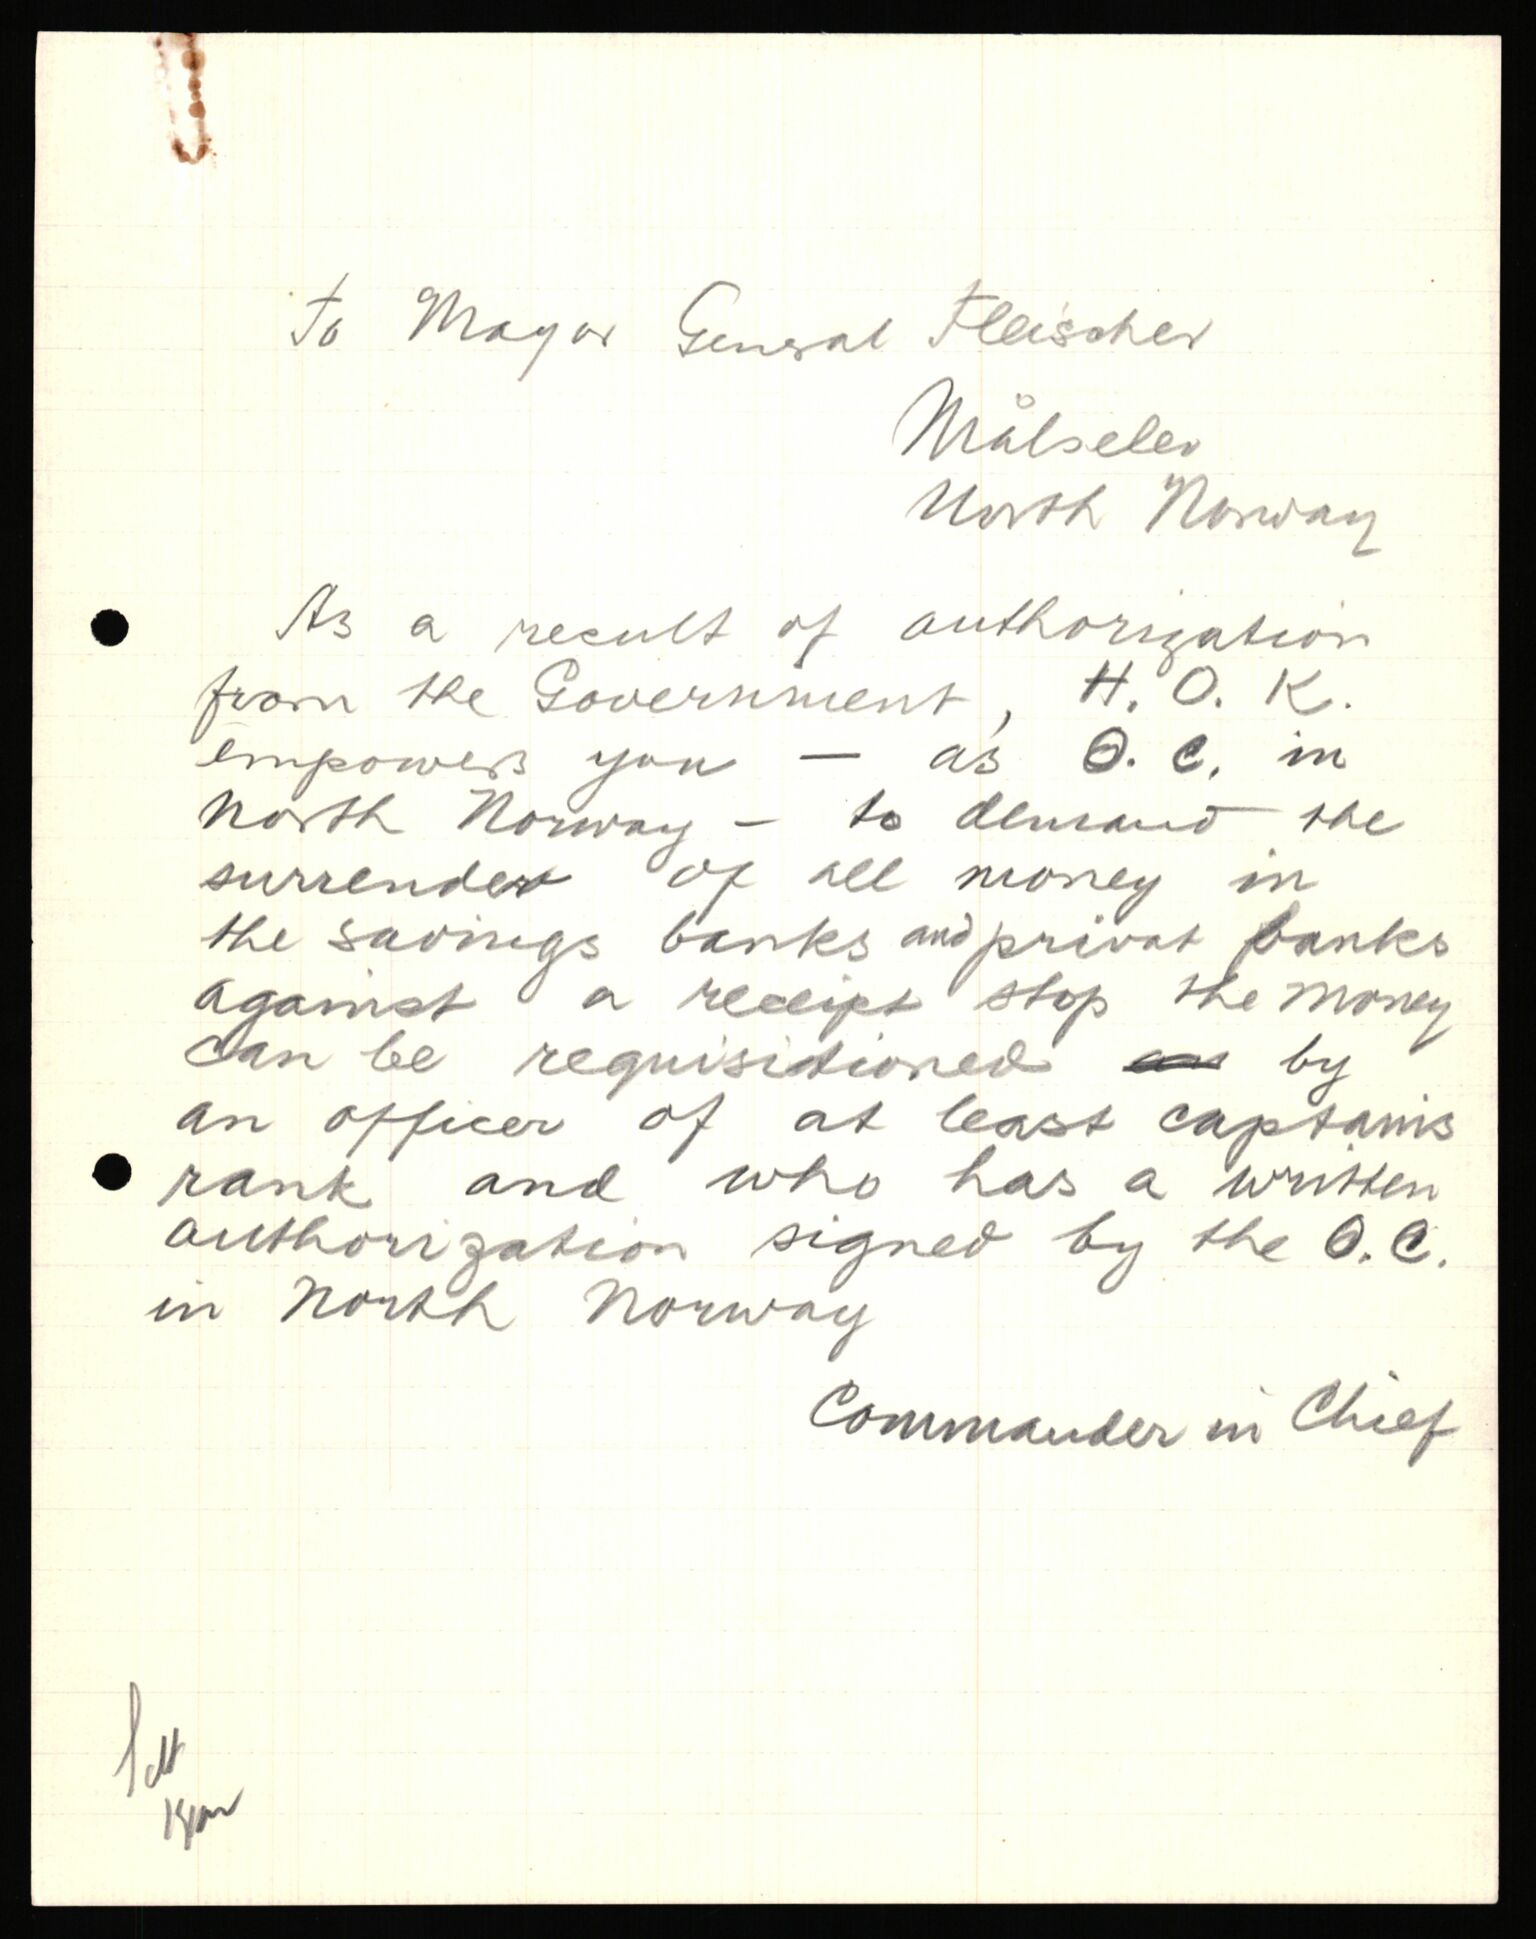 To Mayor General Fleischer
Målselv
North Norway
As a result of authorization
from the Government, H.O.K.
empowers you – as O.C. in
North Norway – to demand the
surrender of all money in
the savings banks and privat banks
against a receipt stop the money
can be requisitioned by
an officer of at least captains
rank and who has a written
authorization signed by the O.C.
in North Norway
Commander in Chief